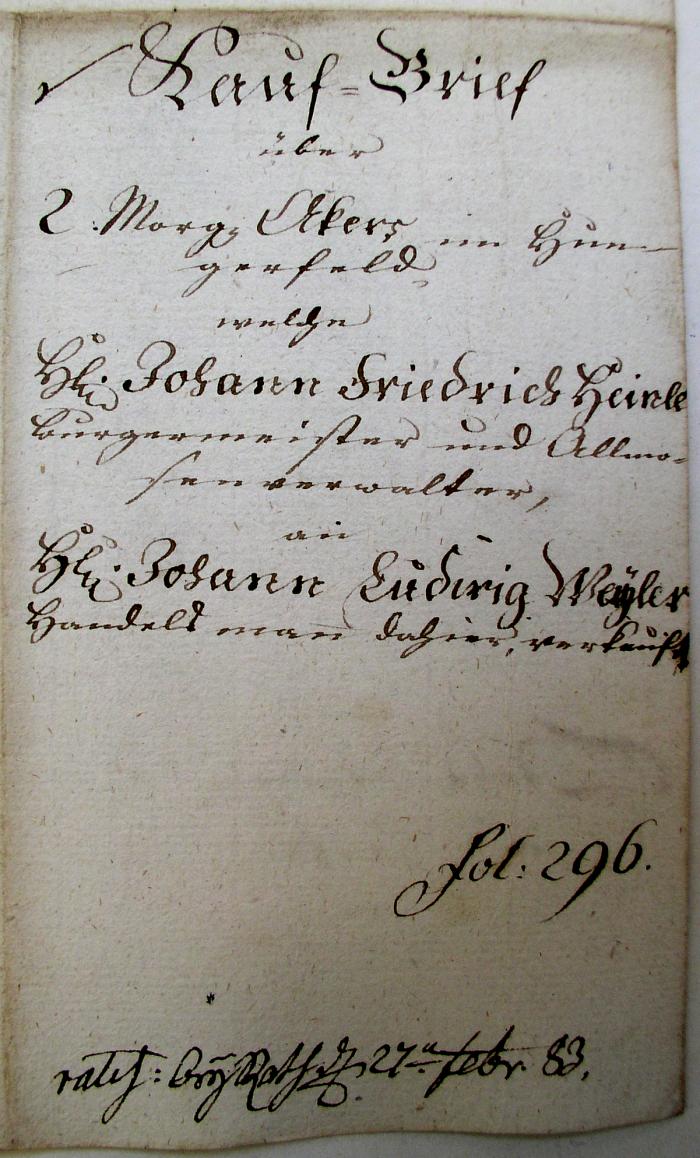 Kauf-Brief
über
2. Morg. Akers im Hun-
gerfeld
welche
Hl: Johann Friedrich Heinle
burgermeister und Allmo-
senverwalter,
an
Hl: Johann Ludwig Weÿler
Handels man dahier, verkauft
fol: 296.
ratif: beÿ Rath d. 27ᵗ febr. 83.